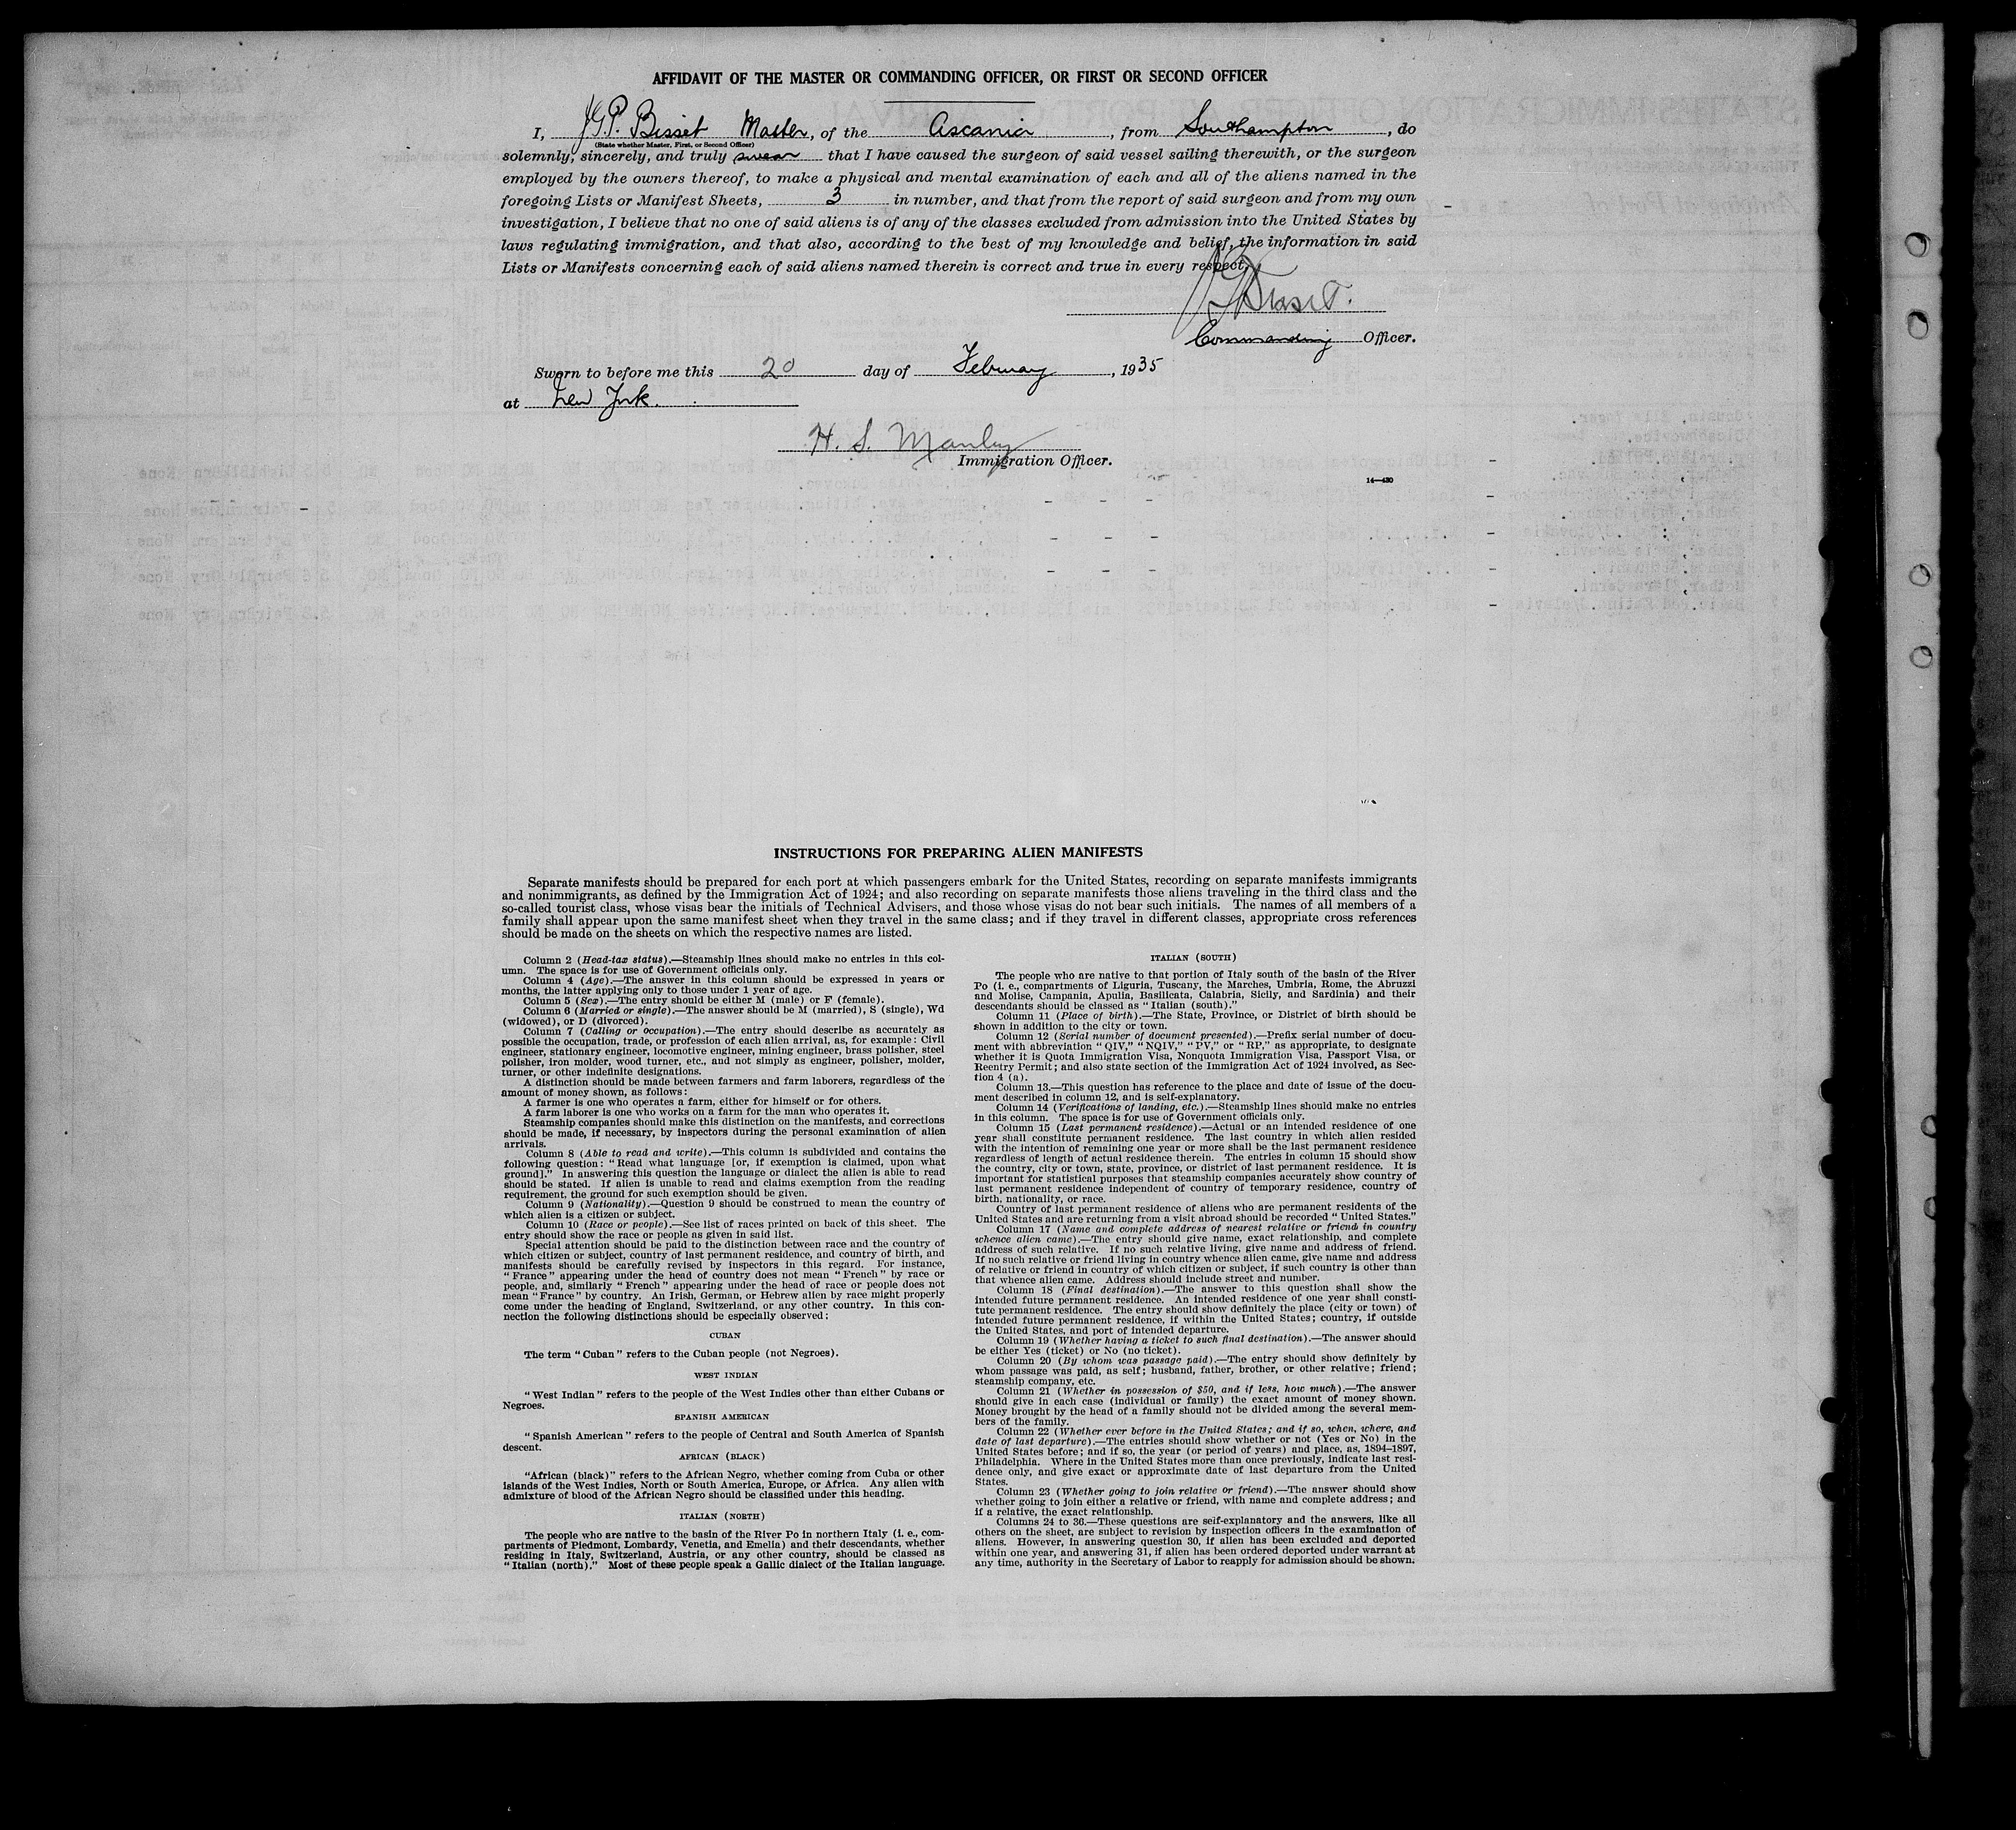 AFFIDAVIT OF THE MASTER OR COMMANDING OFFICER, OR FIRST OR SECOND OFFICER
I, J.G.P. Bisset Master, of the Ascania, from Southampton, do
(State whether Master, First, or Second Officer)
solemnly, sincerely, and truly swear that I have caused the surgeon of said vessel sailing therewith, or the surgeon
employed by the owners thereof, to make a physical and mental examination of each and all of the aliens named in the
foregoing Lists or Manifest Sheets, 3 in number, and that from the report of said surgeon and from my own
investigation, I believe that no one of said aliens is of any of the classes excluded from admission into the United States by
laws regulating immigration, and that also, according to the best of my knowledge and belief, the information in said
Lists or Manifests concerning each of said aliens named therein is correct and true in every respect.
Bisset.
Commanding Officer.
Sworn to before me this 20 day of February, 1935
at New York.
H. S. Manley
Immigration Officer.
14—430
INSTRUCTIONS FOR PREPARING ALIEN MANIFESTS
Separate manifests should be prepared for each port at which passengers embark for the United States, recording on separate manifests immigrants
and nonimmigrants, as defined by the Immigration Act of 1924; and also recording on separate manifests those aliens traveling in the third class and the
so-called tourist class, whose visas bear the initials of Technical Advisers, and those whose visas do not bear such initials. The names of all members of a
family shall appear upon the same manifest sheet when they travel in the same class; and if they travel in different classes, appropriate cross references
should be made on the sheets on which the respective names are listed.
Column 2 (Head-tax status).—Steamship lines should make no entries in this col-
umn. The space is for use of Government officials only.
Column 4 (Age).—The answer in this column should be expressed in years or
months, the latter applying only to those under 1 year of age.
Column 5 (Sex).—The entry should be either M (male) or F (female).
Column 6 (Married or single).—The answer should be M (married), S (single), Wd
(widowed), or D (divorced).
Column 7 (Calling or occupation).—The entry should describe as accurately as
possible the occupation, trade, or profession of each alien arrival, as, for example: Civil
engineer, stationary engineer, locomotive engineer, mining engineer, brass polisher, steel
polisher, iron molder, wood turner, etc., and not simply as engineer, polisher, molder,
turner, or other indefinite designations.
A distinction should be made between farmers and farm laborers, regardless of the
amount of money shown, as follows:
A farmer is one who operates a farm, either for himself or for others.
A farm laborer is one who works on a farm for the man who operates it.
Steamship companies should make this distinction on the manifests, and corrections
should be made, if necessary, by inspectors during the personal examination of alien
arrivals.
Column 8 (Able to read and write).—This column is subdivided and contains the
following question: "Read what language [or, if exemption is claimed, upon what
ground]." In answering this question the language or dialect the alien is able to read
should be stated. If alien is unable to read and claims exemption from the reading
requirement, the ground for such exemption should be given.
Column 9 (Nationality).—Question 9 should be construed to mean the country of
which alien is a citizen or subject.
Column 10 (Race or people).—See list of races printed on back of this sheet. The
entry should show the race or people as given in said list.
Special attention should be paid to the distinction between race and the country of
which citizen or subject, country of last permanent residence, and country of birth, and
manifests should be carefully revised by inspectors in this regard. For instance,
"France" appearing under the head of country does not mean "French" by race or
people, and, similarly "French" appearing under the head of race or people does not
mean "France" by country. An Irish, German, or Hebrew alien by race might properly
come under the heading of England, Switzerland, or any other country. In this con-
nection the following distinctions should be especially observed:
CUBAN
The term "Cuban" refers to the Cuban people (not Negroes).
WEST INDIAN
"West Indian" refers to the people of the West Indies other than either Cubans or
Negroes.
SPANISH AMERICAN
"Spanish American" refers to the people of Central and South America of Spanish
descent.
AFRICAN (BLACK)
"African (black)" refers to the African Negro, whether coming from Cuba or other
islands of the West Indies, North or South America, Europe, or Africa. Any alien with
admixture of blood of the African Negro should be classified under this heading.
ITALIAN (NORTH)
The people who are native to the basin of the River Po in northern Italy (i. e., com-
partments of Piedmont, Lombardy, Venetia, and Emelia) and their descendants, whether
residing in Italy, Switzerland, Austria, or any other country, should be classed as
"Italian (north)." Most of these people speak a Gallic dialect of the Italian language.
ITALIAN (SOUTH)
The people who are native to that portion of Italy south of the basin of the River
Po (i. e., compartments of Liguria, Tuscany, the Marches, Umbria, Rome, the Abruzzi
and Molise, Campania, Apulia, Basilicata, Calabria, Sicily, and Sardinia) and their
descendants should be classed as "Italian (south)."
Column 11 (Place of birth).—The State, Province, or District of birth should be
shown in addition to the city or town.
Column 12 (Serial number of document presented).—Prefix serial number of docu-
ment with abbreviation "QIV," "NQIV," "PV," or "RP," as appropriate, to designate
whether it is Quota Immigration Visa, Nonquota Immigration Visa, Passport Visa, or
Reentry Permit; and also state section of the Immigration Act of 1924 involved, as Sec-
tion 4 (a).
Column 13.—This question has reference to the place and date of issue of the docu-
ment described in column 12, and is self-explanatory.
Column 14 (Verifications of landing, etc.).—Steamship lines should make no entries
in this column. The space is for use of Government officials only.
Column 15 (Last permanent residence).—Actual or an intended residence of one
year shall constitute permanent residence. The last country in which alien resided
with the intention of remaining one year or more shall be the last permanent residence
regardless of length of actual residence therein. The entries in column 15 should show
the country, city or town, state, province, or district of last permanent residence. It is
important for statistical purposes that steamship companies accurately show country of
last permanent residence independent of country of temporary residence, country of
birth, nationality, or race.
Country of last permanent residence of aliens who are permanent residents of the
United States and are returning from a visit abroad should be recorded "United States."
Column 17 (Name and complete address of nearest relative or friend in country
whence alien came).—The entry should give name, exact relationship, and complete
address of such relative. If no such relative living, give name and address of friend.
If no such relative or friend living in country whence alien came, give name and address
of relative or friend in country of which citizen or subject, if such country is other than
that whence alien came. Address should include street and number.
Column 18 (Final destination).—The answer to this question shall show the
intended future permanent residence. An intended residence of one year shall consti-
tute permanent residence. The entry should show definitely the place (city or town) of
intended future permanent residence, if within the United States; country, if outside
the United States, and port of intended departure.
Column 19 (Whether having a ticket to such final destination).—The answer should
be either Yes (ticket) or No (no ticket).
Column 20 (By whom was passage paid).—The entry should show definitely by
whom passage was paid, as self; husband, father, brother, or other relative; friend;
steamship company, etc.
Column 21 (Whether in possession of $50, and if less, how much).—The answer
should give in each case (individual or family) the exact amount of money shown.
Money brought by the head of a family should not be divided among the several mem-
bers of the family.
Column 22 (Whether ever before in the United States; and if so, when, where, and
date of last departure).—The entries should show whether or not (Yes or No) in the
United States before; and if so, the year (or period of years) and place, as, 1894–1897,
Philadelphia. Where in the United States more than once previously, indicate last resi-
dence only, and give exact or approximate date of last departure from the United
States.
Column 23 (Whether going to join relative or friend).—The answer should show
whether going to join either a relative or friend, with name and complete address; and
if a relative, the exact relationship.
Columns 24 to 36.—These questions are self-explanatory and the answers, like all
others on the sheet, are subject to revision by inspection officers in the examination of
aliens. However, in answering question 30, if alien has been excluded and deported
within one year, and answering 31, if alien has been ordered deported under warrant at
any time, authority in the Secretary of Labor to reapply for admission should be shown.